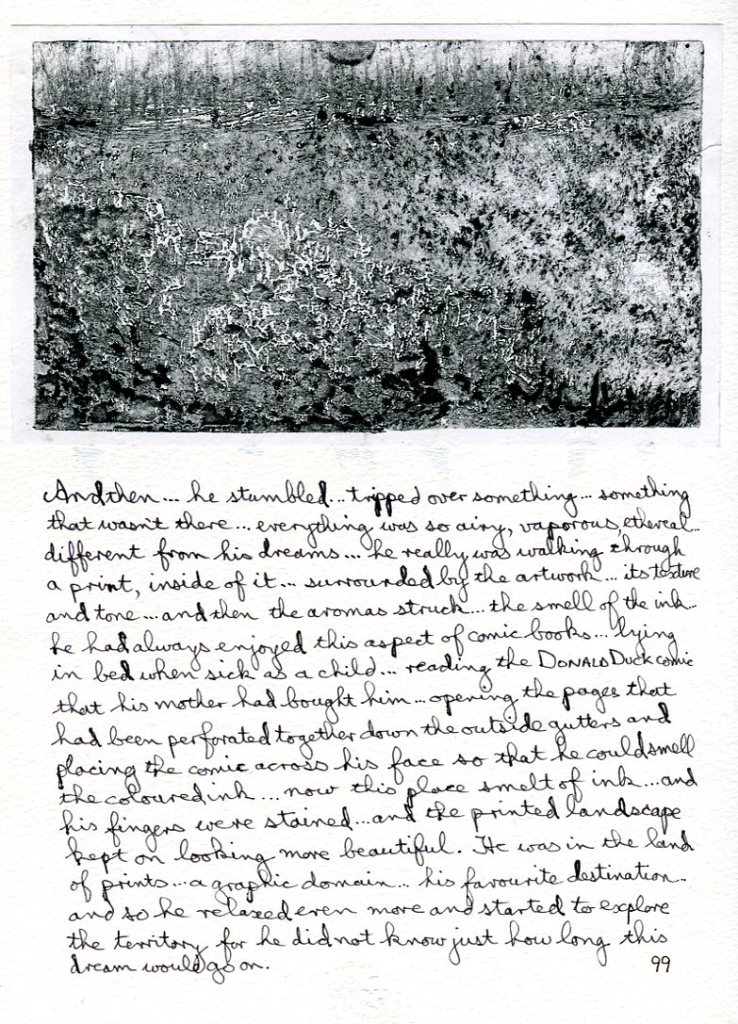 And then... he stumbled... tripped over something... something
that wasn't there... everything was so airy, vaporous, ethereal...
different from his dreams... he really was walking through
a print, inside of it... surrounded by the artwork... its texture
and tone... and then the aromas struck... the smell of the ink...
he had always enjoyed this aspect of comic books... lying
in bed when sick as a child... reading the DONALD DUCK comic
that his mother had bought him... opening the pages that
had been perforated together down the outside gutters and
placing the comic across his face so that he could smell
the coloured ink... now this place smelt of ink... and
his fingers were stained... and the printed landscape
kept on looking more beautiful. He was in the land
of prints... a graphic domain... his favourite destination...
and so he relaxed even more and started to explore
the territory for he did not know just how long this
dream would go on.
99